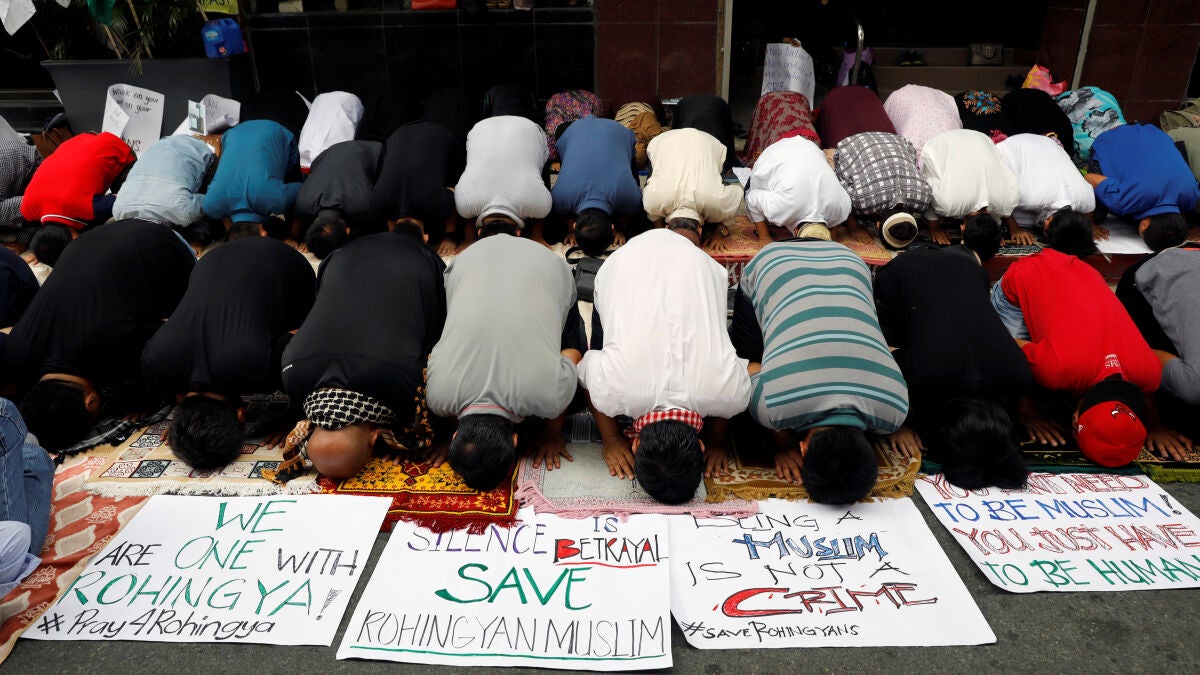 WE
ARE ONE WITH
ROHINGYA!
#Pray4Rohingya
SILENCE IS BETRAYAL
SAVE
ROHINGYAN MUSLIM
BEING A
MUSLIM
IS NOT A
CRIME
#SAVEROHINGYANS
NEED
TO BE MUSLIM!
YOU JUST HAVE
TO BE HUMAN